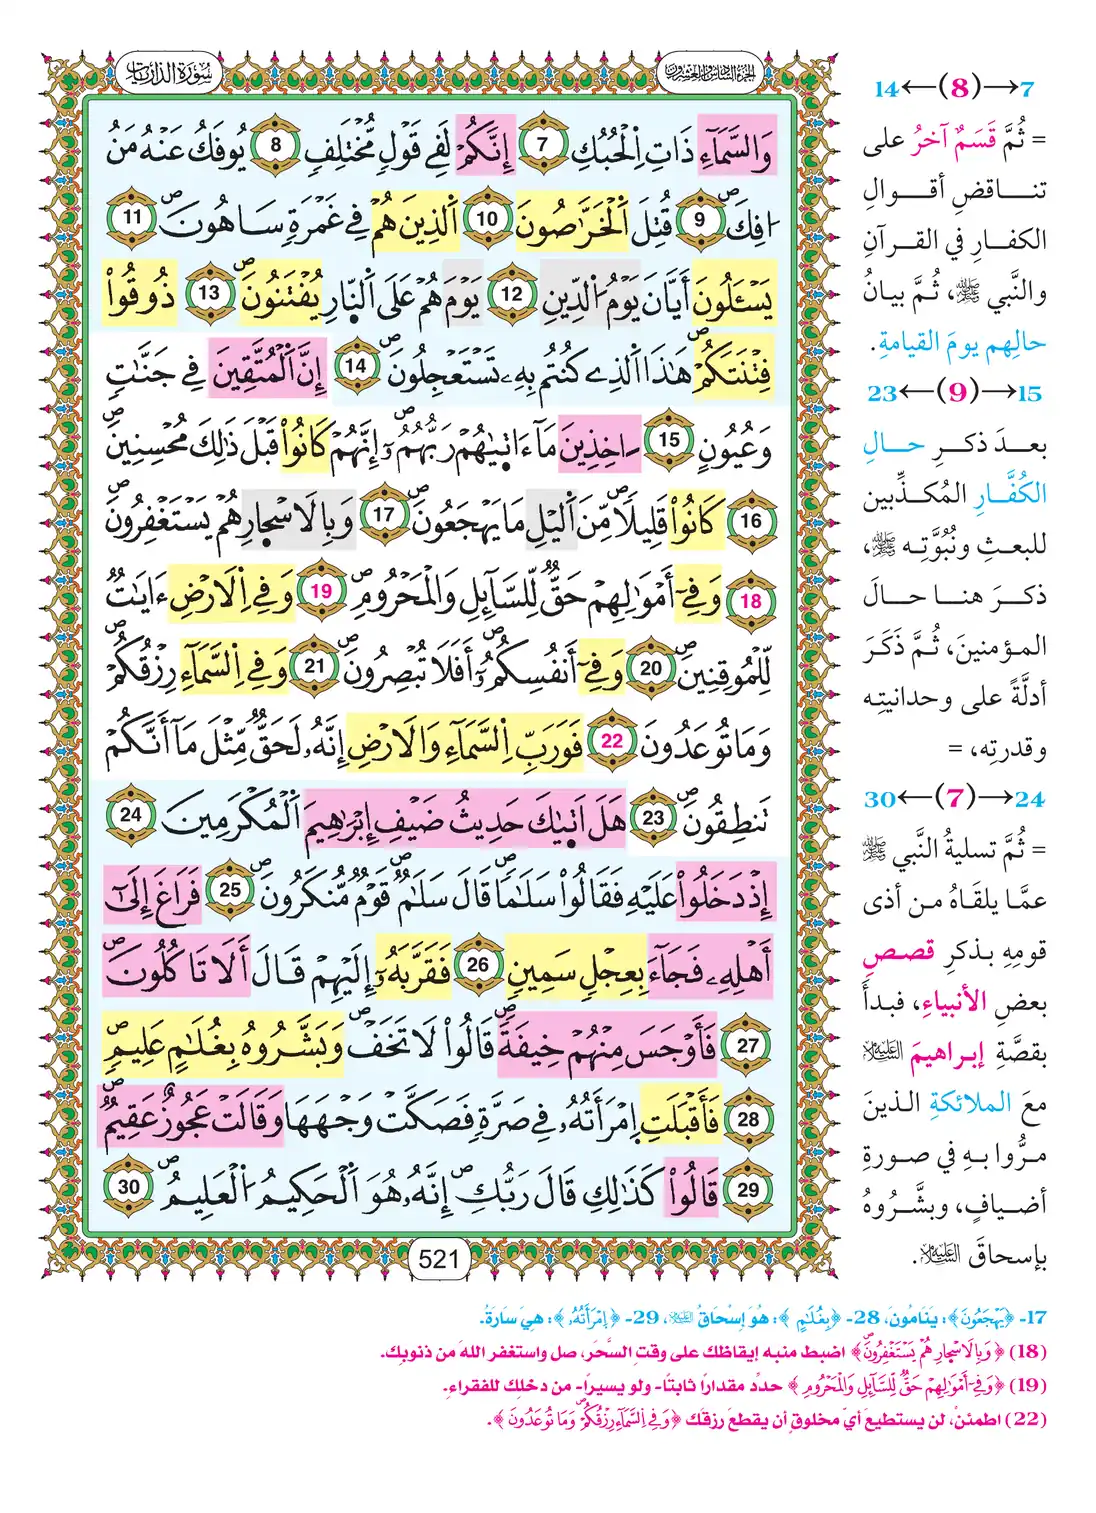 سورة الذاريات
الجزء السادس والعشرون
وَالسَّمَآءِ ذَاتِ اِ۬لْحُبُكِ 7 إِنَّكُمْ لَفِے قَوْلٖ مُّخْتَلِفٖ 8 يُوفَكُ عَنْهُ مَنُ
ا۟فِكَ 9 قُتِلَ اَ۬لْخَرَّٰصُونَ 10 اَ۬لذِينَ هُمْ فِے غَمْرَةٖ سَاهُونَ 11
يَسْـَٔلُونَ أَيَّانَ يَوْمُ اُ۬لدِّينِ 12 يَوْمَ هُمْ عَلَى اَ۬لنّ۪ارِ يُفْتَنُونَ 13 ذُوقُواْ
فِتْنَتَكُمْ هَٰذَا اَ۬لذِے كُنتُم بِهِۦ تَسْتَعْجِلُونَ 14 إِنَّ اَ۬لْمُتَّقِينَ فِے جَنَّٰتٖ
وَعُيُونٍ 15 ـاخِذِينَ مَآ ءَات۪يٰهُمْ رَبُّهُمُۥٓ إِنَّهُمْ كَانُواْ قَبْلَ ذَٰلِكَ مُحْسِنِينَ
16 كَانُواْ قَلِيلاٗ مِّنَ اَ۬ليْلِ مَا يَهْجَعُونَ 17 وَبِالَاسْح۪ارِ هُمْ يَسْتَغْفِرُونَ
18 وَفِےٓ أَمْوَٰلِهِمْ حَقّٞ لِّلسَّآئِلِ وَالْمَحْرُومِ 19 وَفِے اِ۬لَارْضِ ءَايَٰتٞ
لِّلْمُوقِنِينَ 20 وَفِےٓ أَنفُسِكُمُۥٓ أَفَلَا تُبْصِرُونَ 21 وَفِے اِ۬لسَّمَآءِ رِزْقُكُمْ
وَمَا تُوعَدُونَ 22 فَوَرَبِّ اِ۬لسَّمَآءِ وَالَارْضِ إِنَّهُۥ لَحَقّٞ مِّثْلَ مَآ أَنَّكُمْ
تَنطِقُونَ 23 هَلَ اَت۪يٰكَ حَدِيثُ ضَيْفِ إِبْرَٰهِيمَ اَ۬لْمُكْرَمِينَ 24
إِذْ دَخَلُواْ عَلَيْهِ فَقَالُواْ سَلَٰماٗ قَالَ سَلَٰمٞ قَوْمٞ مُّنكَرُونَ 25 فَرَاغَ إِلَىٰٓ
أَهْلِهِۦ فَجَآءَ بِعِجْلٖ سَمِينٖ 26 فَقَرَّبَهُۥٓ إِلَيْهِمْ قَالَ أَلَا تَاكُلُونَ
27 فَأَوْجَسَ مِنْهُمْ خِيفَةٗ قَالُواْ لَا تَخَفْ وَبَشَّرُوهُ بِغُلَٰمٍ عَلِيمٖ
28 فَأَقْبَلَتِ اِ۪مْرَأَتُهُۥ فِے صَرَّةٖ فَصَكَّتْ وَجْهَهَا وَقَالَتْ عَجُوزٌ عَقِيمٞ
29 قَالُواْ كَذَٰلِكِ قَالَ رَبُّكِ إِنَّهُۥ هُوَ اَ۬لْحَكِيمُ اُ۬لْعَلِيمُ 30
521
7→(8)←14
= ثُمَّ قَسَمٌ آخرُ على
تناقضِ أقوالِ
الكفارِ في القرآنِ
والنَّبي ﷺ، ثُمَّ بيانُ
حالِهم يومَ القيامةِ.
15→(9)←23
بعدَ ذكرِ حالِ
الكُفَّارِ المُكذِّبين
للبعثِ ونُبُوَّتِه ﷺ،
ذكرَ هنا حالَ
المؤمنينَ، ثُمَّ ذَكَرَ
أدلَّةً على وحدانيتِه
وقدرتِه، =
24→(7)←30
= ثُمَّ تسليةُ النَّبي ﷺ
عمَّا يلقَاهُ من أذى
قومِهِ بذكرِ قصصِ
بعضِ الأنبياءِ، فبدأَ
بقصَّةِ إبراهيمَ عليه السلام
معَ الملائكةِ الذينَ
مرُّوا به في صورةِ
أضيافٍ، وبشَّروُهُ
بإسحاقَ عليه السلام.
17- ﴿يَهْجَعُونَ﴾: يَنَامُونَ، 28- ﴿بِغُلَٰمٍ﴾: هُوَ إِسْحَاقُ عليه السلام، 29- ﴿اِ۪مْرَأَتُهُۥ﴾: هِيَ سَارَةُ.
(18) ﴿وَبِالَاسْح۪ارِ هُمْ يَسْتَغْفِرُونَ﴾ اضبط منبه إيقاظك على وقتِ السَّحَر، صل واستغفر الله من ذنوبك.
(19) ﴿وَفِےٓ أَمْوَٰلِهِمْ حَقّٞ لِّلسَّآئِلِ وَالْمَحْرُومِ﴾ حدِّد مقدارًا ثابتًا- ولو يسيرًا- من دخلك للفقراءِ.
(22) اطمئنْ، لن يستطيعَ أيّ مخلوقٍ أن يقطعَ رزقَك ﴿وَفِے اِ۬لسَّمَآءِ رِزْقُكُمْ وَمَا تُوعَدُونَ﴾.